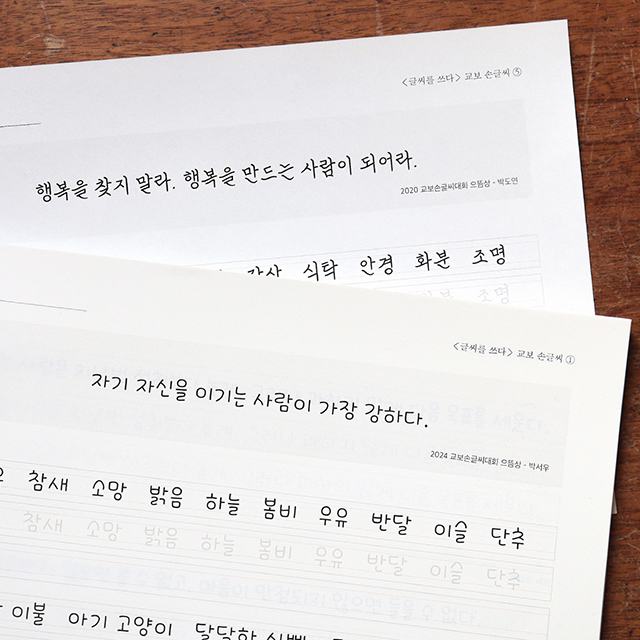 <글씨를 쓰다> 교보 손글씨 ⑤
행복을 찾지 말라. 행복을 만드는 사람이 되어라.
2020 교보손글씨대회 으뜸상 - 박도연
식탁 안경 화분 조명
화분 조명
<글씨를 쓰다> 교보 손글씨 ①
자기 자신을 이기는 사람이 가장 강하다.
2024 교보손글씨대회 으뜸상 - 박서우
참새 소망 밝음 하늘 봄비 우유 반달 이슬 단추
참새 소망 밝음 하늘 봄비 우유 반달 이슬 단추
이불 아기 고양이 달달한